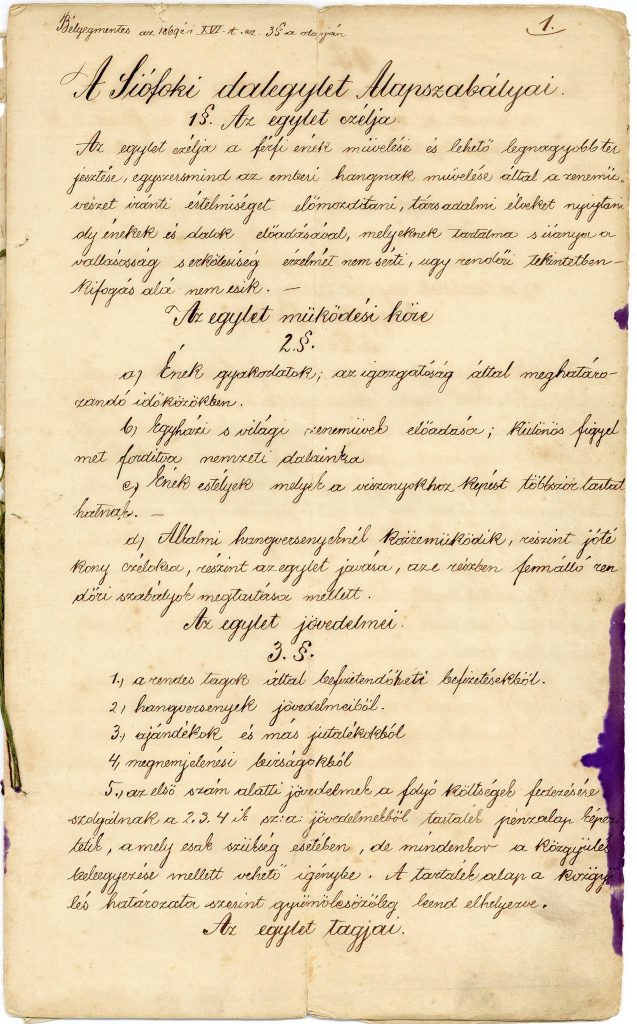 Bélyegmentes az 1869 évi XVI. t. cz. 3§ a alapján
1.
A Siófoki dalegylet Alapszabályai.
1§. Az egylet czélja.
Az egylet czélja a férfi ének müvelése és lehető legnagyobb ter
jesztése, egyszersmind az emberi hangnak müvelése által a zenemü-
vészet iránti értelmiséget előmozditani, társadalmi élveket nyujtani
oly énekek és dalok előadásával, melyeknek tartalma s iránya a
vallásosság s erkölcsiség érzelmét nem sérti, ugy rendőri tekintetben
kifogás alá nem esik. —
Az egylet müködési köre
2.§.
a) Ének gyakorlatok; az igazgatóság által meghatáro-
zandó időközökben.
b) Egyházi s világi zenemüvek előadása; különös figyel
met forditva nemzeti dalainkra
c) Ének estélyek melyek a viszonyokhoz képest többször tartat
hatnak. —
d) Általmi hangversenyeknél közremüködik, részint jóté
kony czélokra, részint az egylet javára, az e részben fennálló ren
dőri szabályok megtartása mellett.
Az egylet jövedelmei.
3.§.
1., a rendes tagok által befizetendő heti befizetésekből.
2, hangversenyek jövedelmeiből.
3, ajándékok és más jutalékokból
4, megnemjelenési birságokból
5., az első szám alatti jövedelmek a folyó költségek fedezésére
szolgálnak a 2. 3. 4 ik sz: a: jövedelmekből tartalék pénzalap képez
tetik, a mely csak szükség esetében, de mindenkor a közgyülés
beleegyezése mellett vehető igénybe. A tartalék alap a közgyü
lés határozata szerint gyümölcsözőleg lend elhelyezve.
Az egylet tagjai.